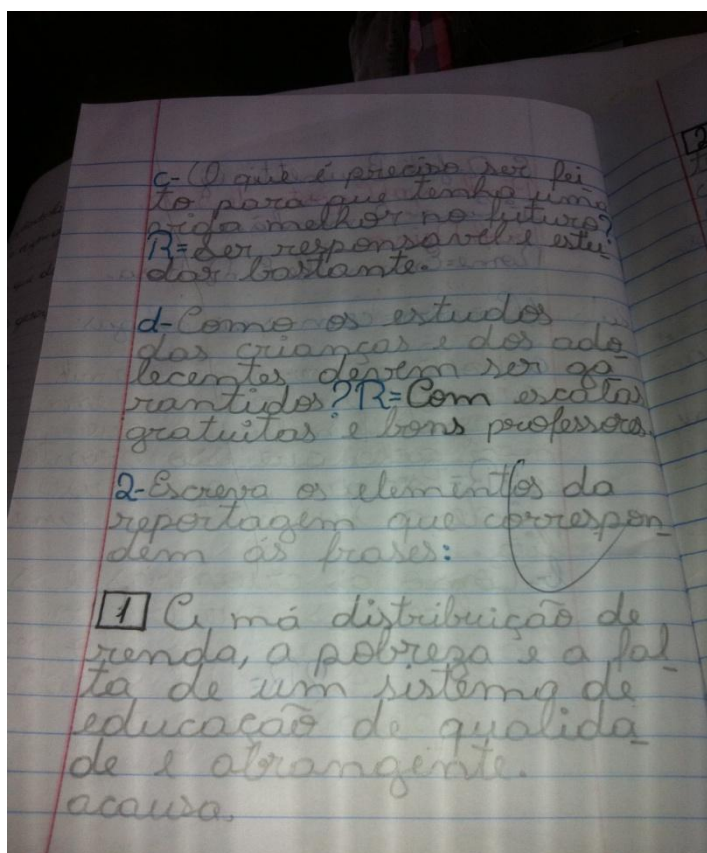 c-O que é preciso ser fei-
to para que tenha uma
vida melhor no futuro?
R=Ser responsável e estu-
dar bastante.
d-Como os estudos
das crianças e dos ado-
lecentes devem ser ga-
rantidos? R=Com escolas
gratuitas e bons professores.
2-Escreva os elementos da
reportagem que correspon-
dem ás frases:
1 A má distribuição de
renda, a pobreza e a fal-
ta de um sistema de
educação de qualida-
de e abrangente.
acausa.